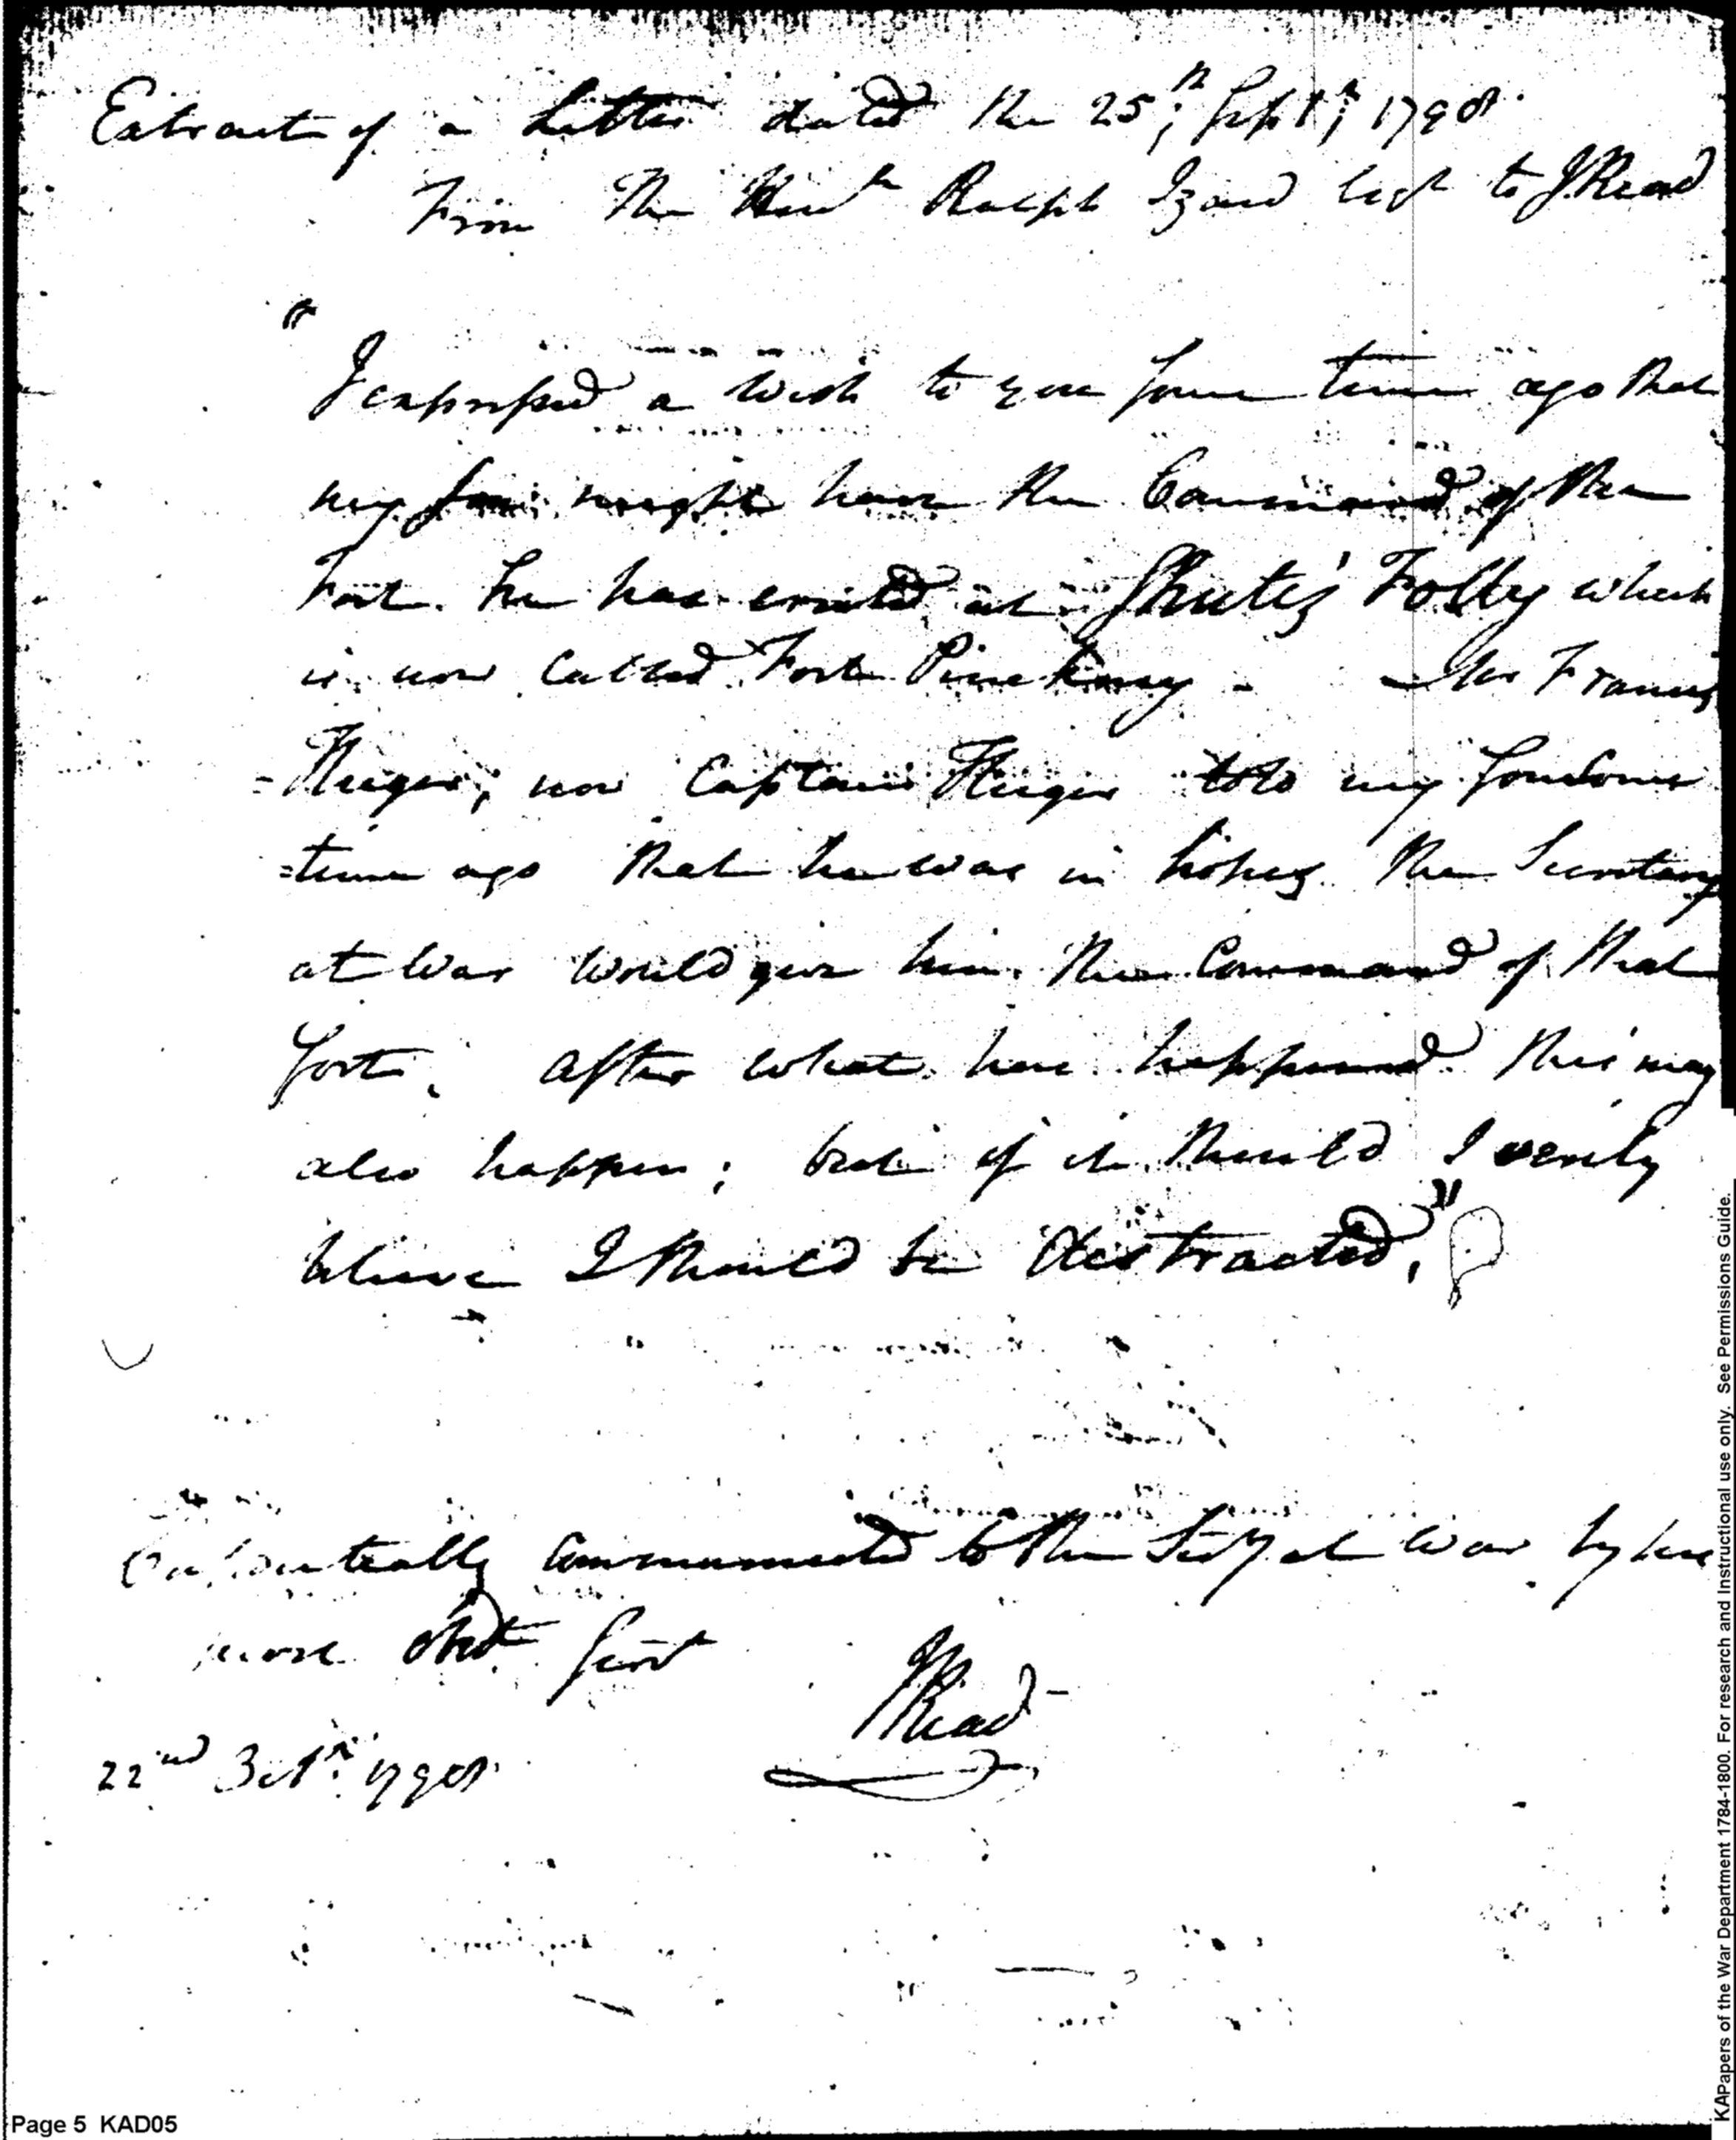 Extract of a Letter dated the 25th; Septr; 1798.
From The Honle Ralph Izard Esqr to J Read
"
I expressed a wish to you some time ago that
my son might have the Command of the
Fort he has erected at Shutes' Folly which
is now Called Fort Pinckney - Mr Francis
=Huger, now Captain Huger told my son some
=time ago that he was in hopes the Secretary
at War would give him the Command of that
fort; after what has happened this may
also happen; but if it should I verily
believe I should be distracted."
Confidentially Communicated to the Secy at War by his
most Obdt Servt
J Read
22nd Octr. 1798.
Page 5 KAD05
KAPapers of the War Department 1784-1800. For research and Instructional use only. See Permissions Guide.